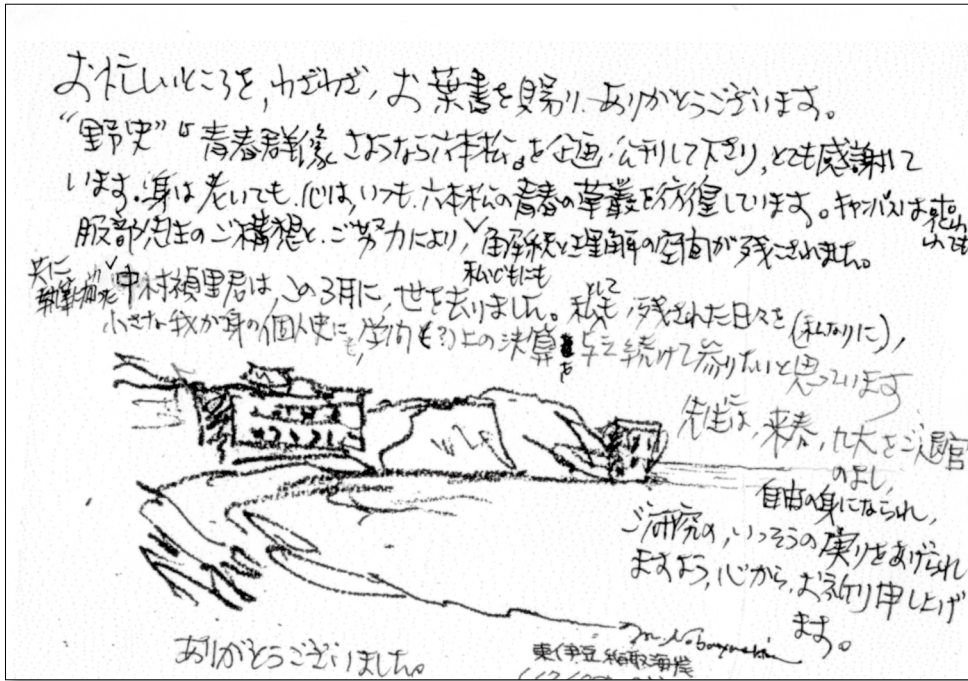 お忙しいところを、わざわざ、お葉書を賜り、ありがとうございます。
"野史" 青春群像 さようなら六本松。を企画・公刊して下さり、とても感謝して
います。身は老いても、心は、いつも、六本松の青春の草叢を彷徨しています。キャンパスは
服部先生のご構想と、ご努力により、解続と理解の空間が残こされました。
私どもにも
共に
中村禎里君は、この3月に、世を去りました。私も、残された日々を(私なりに)、
として
小さな我が身の個人史に、学問 上の決算 を 続けて参りたいと思っています
先生には、来春、九大をご退官
のよし、
自由の身になられ、
ご研究の、いっそうの実りをあげられ
ますよう、心から、お祈り申し上げ
ます。
ありがとうございました。
東伊豆稲取海岸